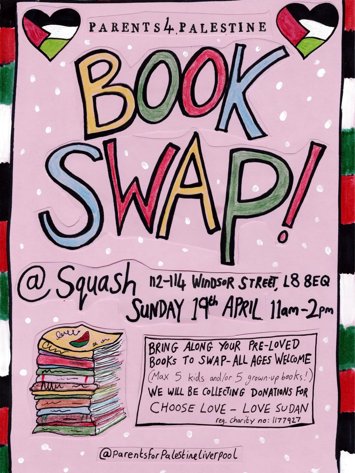 PARENTS4PALESTINE
BOOK
SWAP!
@ Squash 112-114 WINDSOR STREET, L8 8EQ
SUNDAY 19th APRIL 11am-2pm
BRING ALONG YOUR PRE-LOVED
BOOKS TO SWAP-ALL AGES WELCOME
(Max 5 kids and/or 5 grown-up books!)
WE WILL BE COLLECTING DONATIONS FOR
CHOOSE LOVE – LOVE SUDAN
reg. charity no: 1177927
@parentsforPalestineliverpool